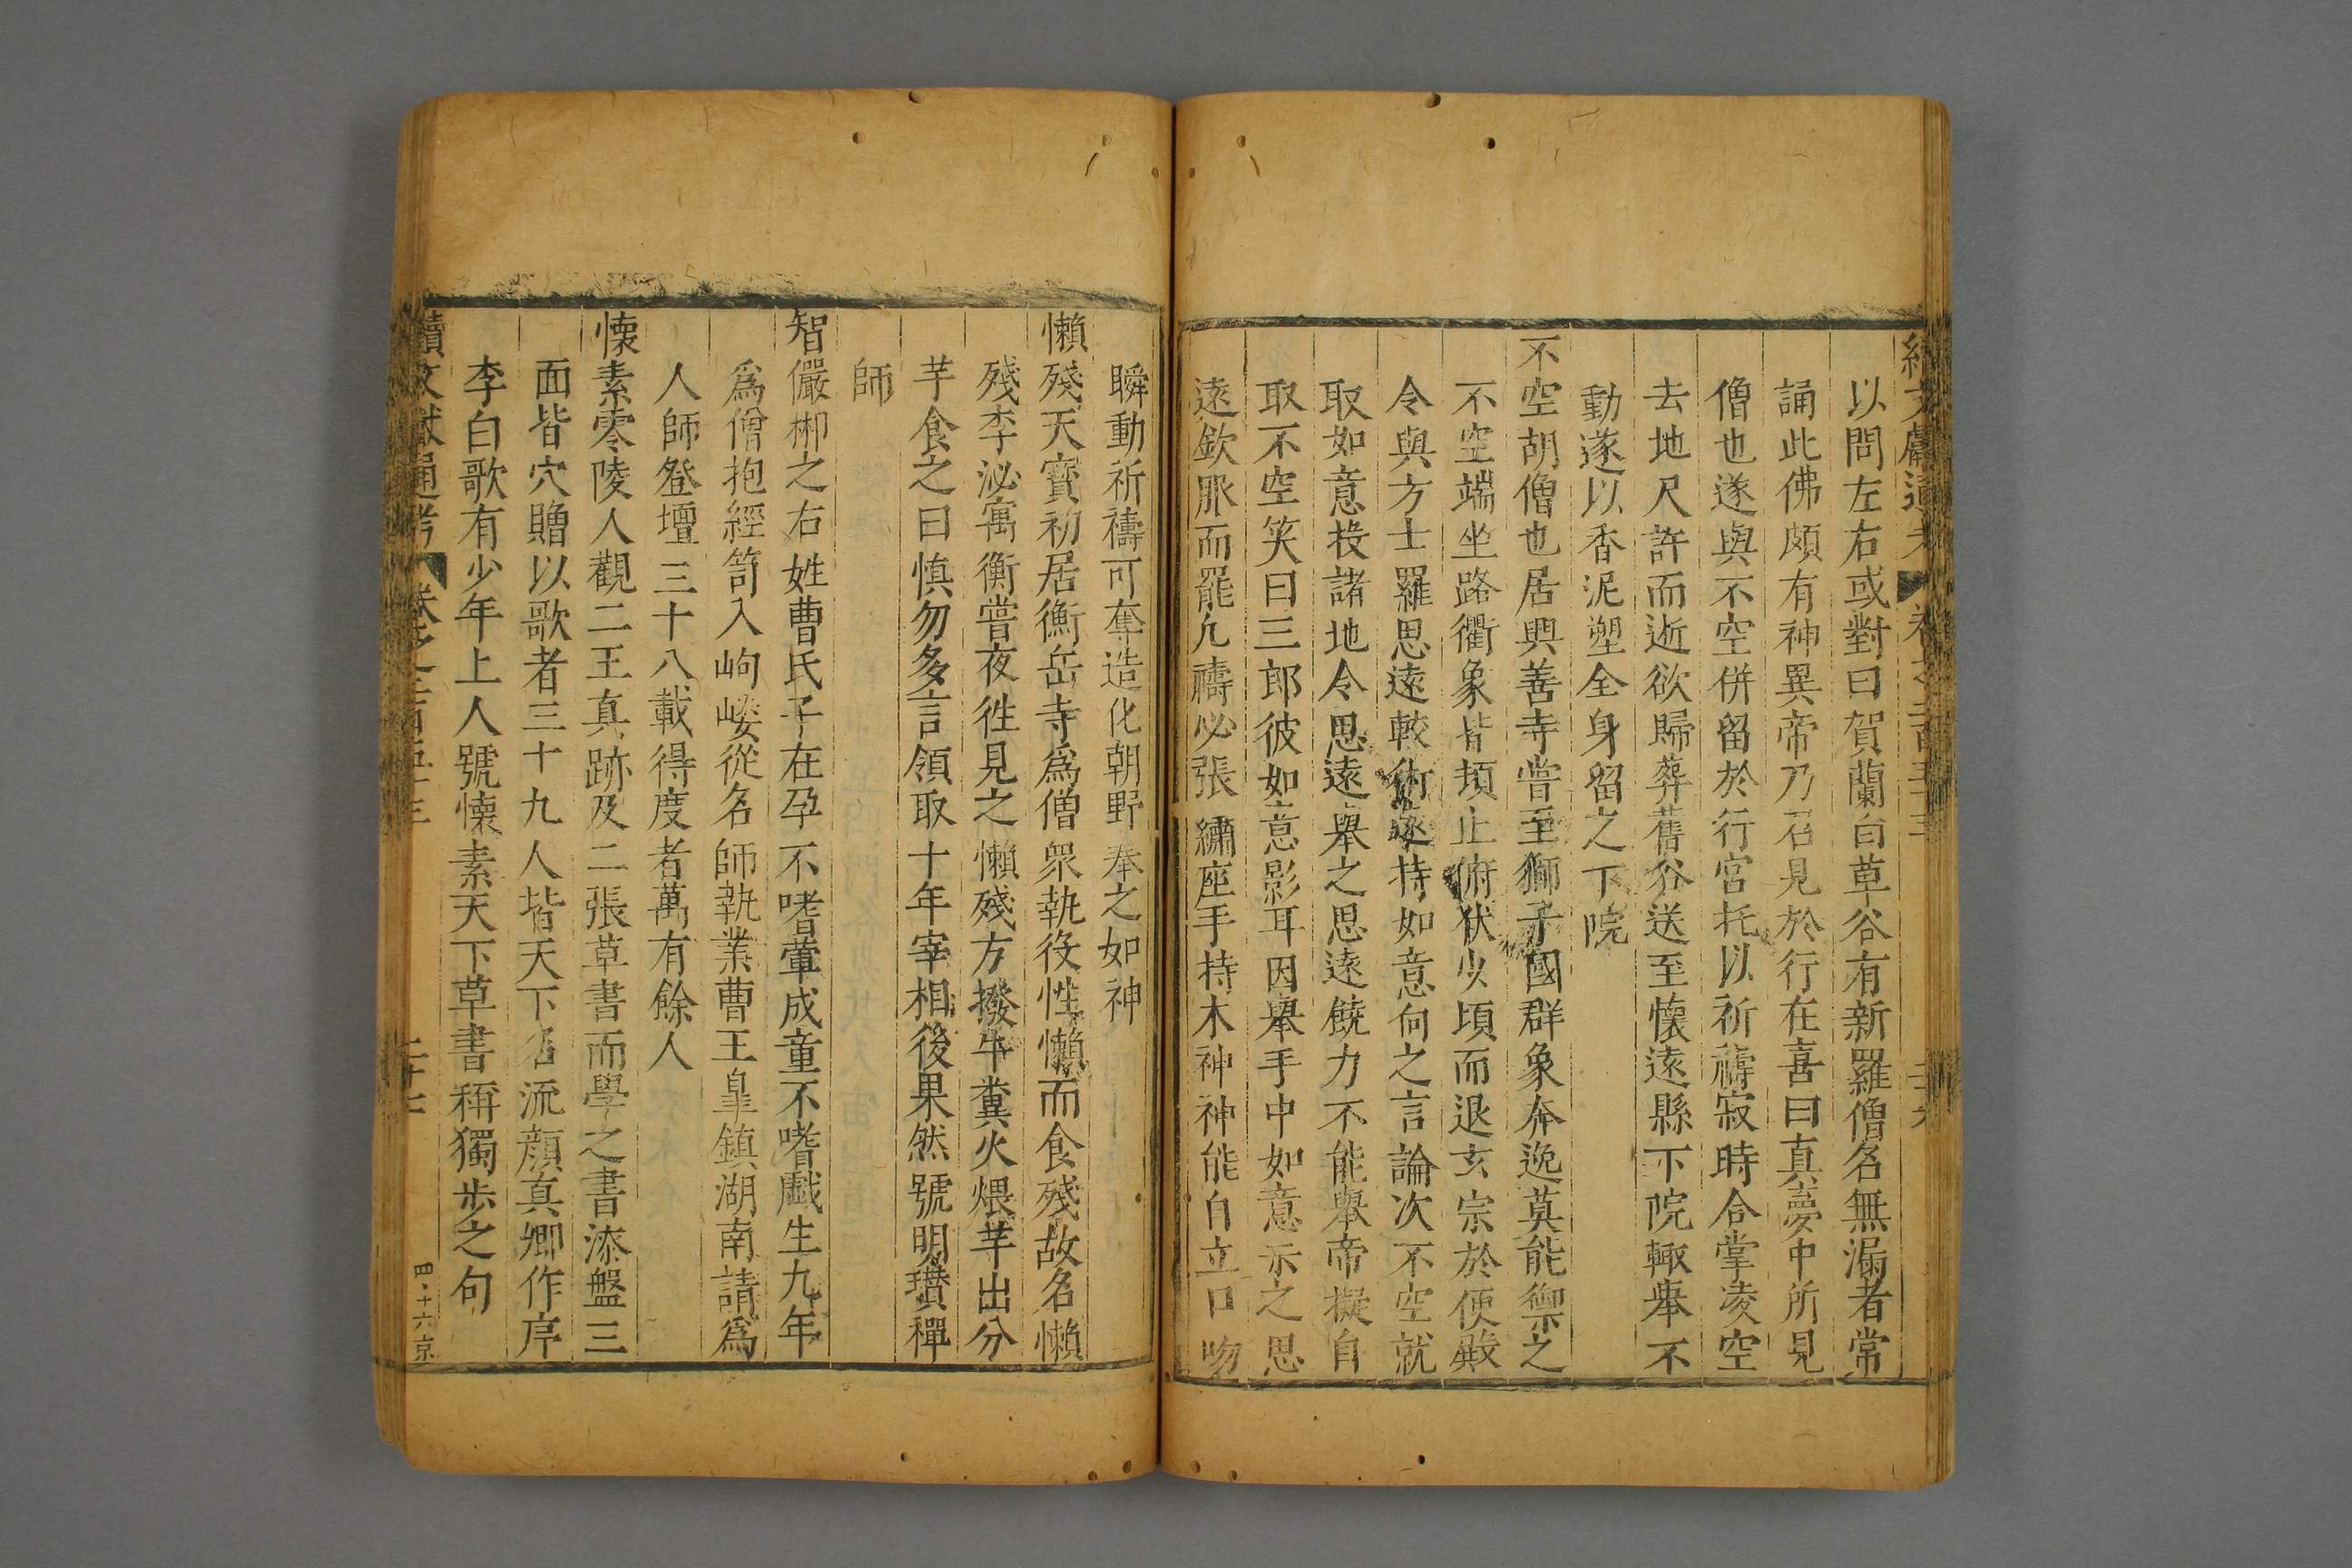 以問左右或對曰賀蘭白草谷有新羅僧名無漏者常
誦此佛頗有神異帝乃召見於行在喜曰真夢中所見
僧也遂與不空併留於行宮托以祈禱寂時合掌凌空
去地尺許而逝欲歸葬舊谷送至懷遠縣下院輙舉不
動遂以香泥塑全身留之下院
不空胡僧也居興善寺嘗至獅子國群象奔逸莫能禦之
不空端坐路衢象皆頓止俯狀少頃而退玄宗於便殿
令與方士羅思遠較術遂持如意向之言論次不空就
取如意投諸地令思遠舉之思遠饒力不能舉帝擬自
取不空笑曰三郎彼如意影耳因舉手中如意示之思
遠欽服而罷凡禱必張繡座手持木神神能自立口吻
瞬動祈禱可奪造化朝野奉之如神
懶殘天寶初居衡岳寺爲僧衆執役性懶而食殘故名懶
殘李泌寓衡嘗夜徃見之懶殘方撥牛糞火煨芋出分
芋食之曰慎勿多言領取十年宰相後果然號明瓚禪
師
智儼郴之右姓曹氏子在孕不嗜葷成童不嗜戲生九年
爲僧抱經笥入岣嶁從名師執業曹王皐鎮湖南請爲
人師登壇三十八載得度者萬有餘人
懷素零陵人觀二王真跡及二張草書而學之書漆盤三
面皆穴贈以歌者三十九人皆天下名流顔真卿作序
李白歌有少年上人號懷素天下草書稱獨步之句
續文獻通考 卷之二百五十三 二十七 四十六 京